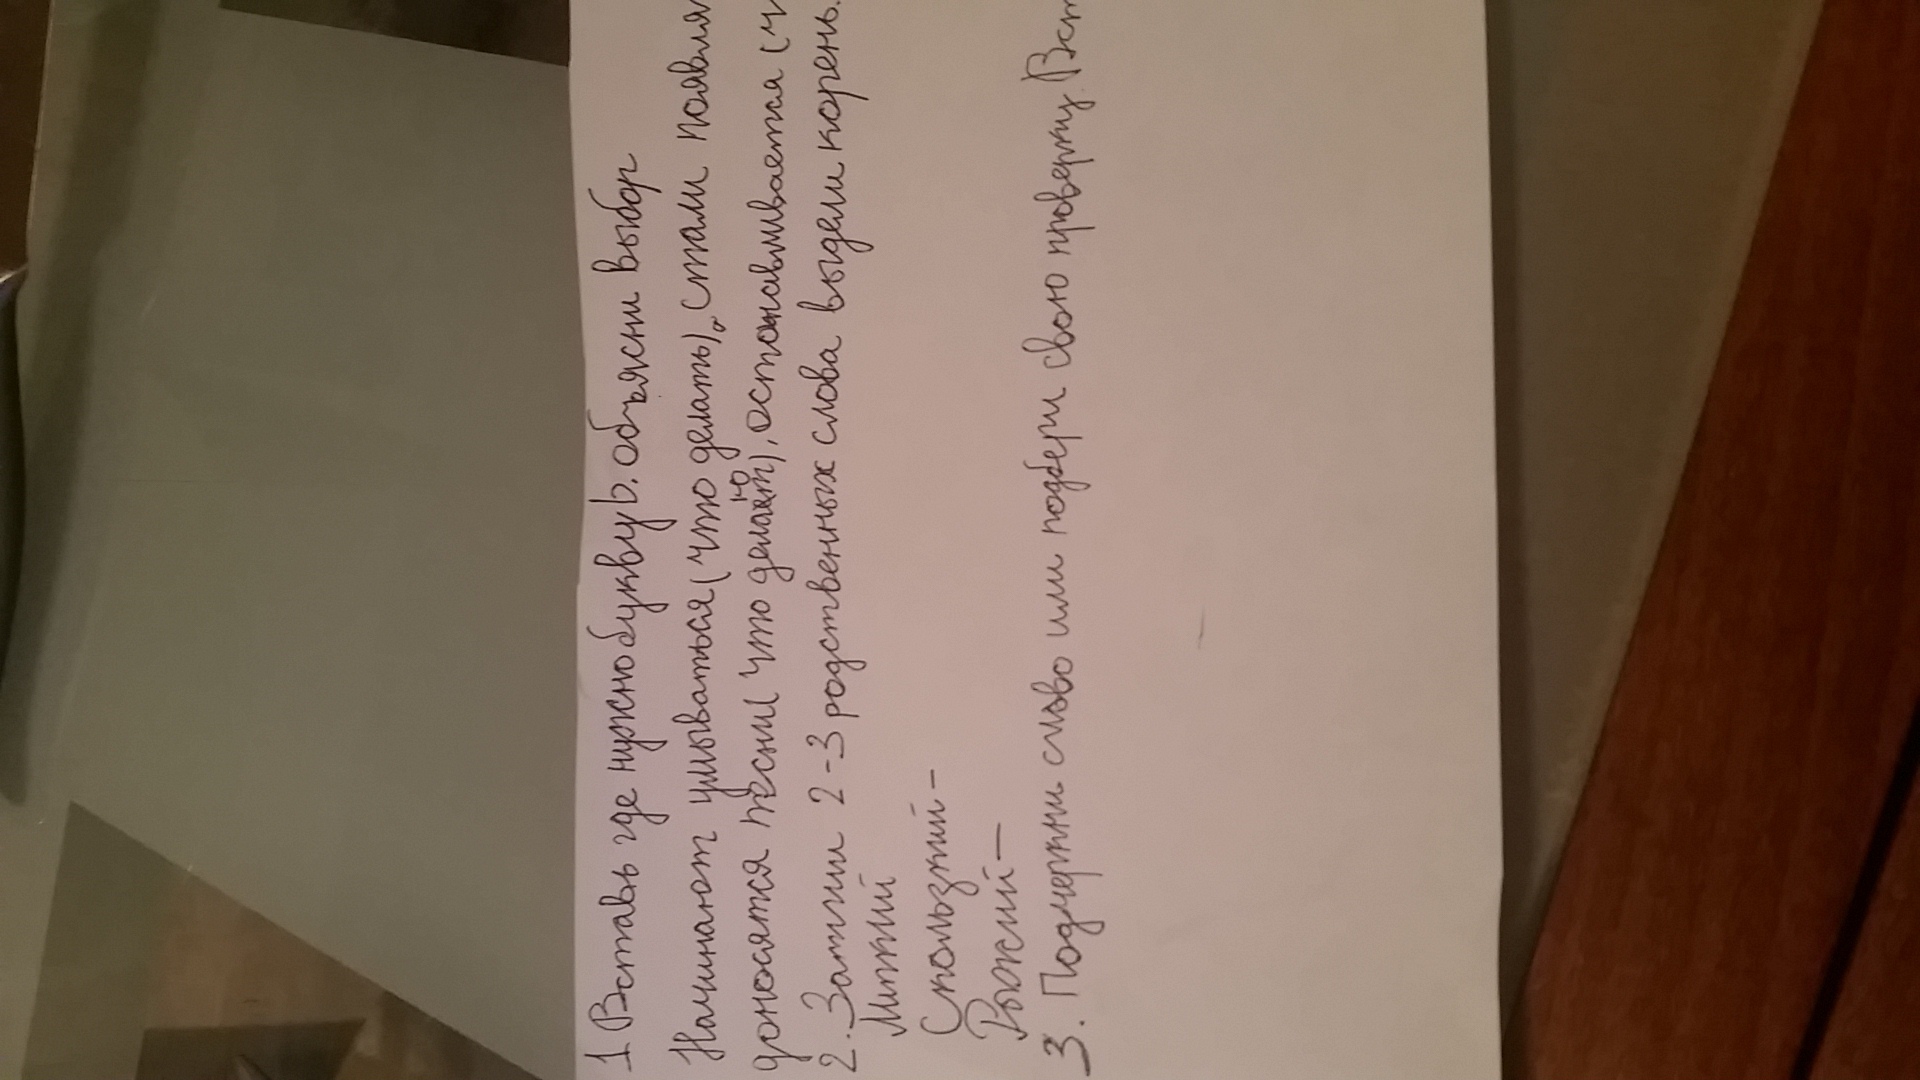 1 Вставь где нужно букву ь. объясни выбор
Начинают умываться (что делать), стали появля
доносятся песни (что делают), останавливается (ч
2. Запиши 2-3 родственных слова выдели корень.
Липкий
Скользкий –
Рыжий –
3. Подчеркни слово или подбери свою проверку. Вст